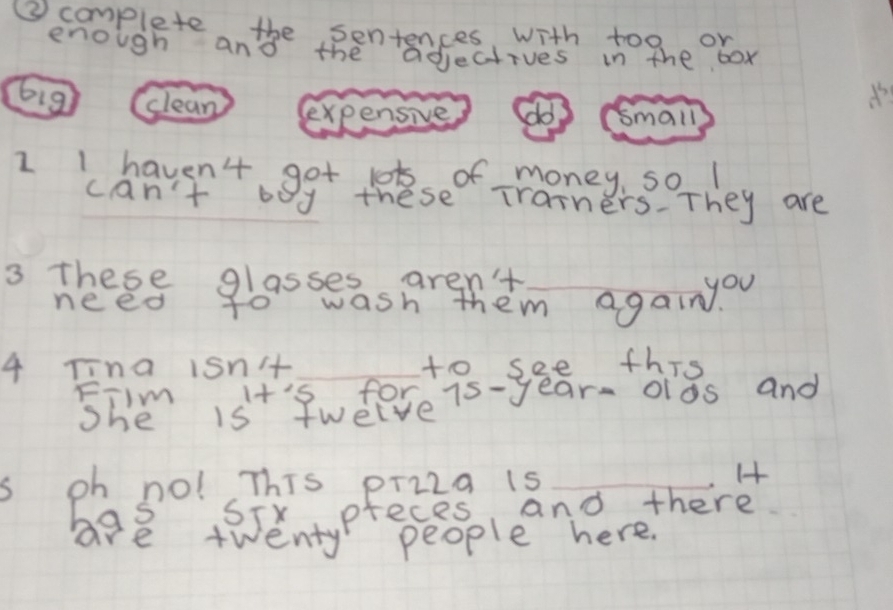 ② complete the sentences with too or
enough and the adjectives in the box
big clean expensive old small
2 I haven't got lots of money, so I
can't buy these Trainers. They are
3 These glasses aren't you
need to wash them again.
4 Tina isn't to see this
Film It's for 15-year-olds and
She is twelve
5 oh no! This pizza is . It
has six pieces and there
are twenty people here.